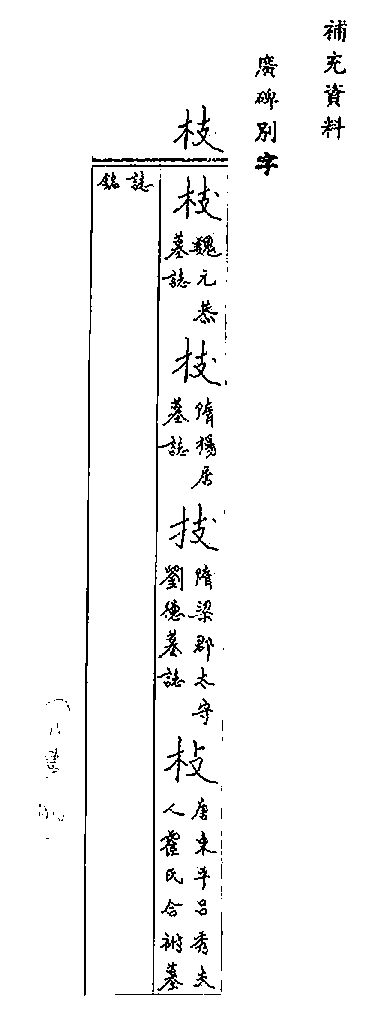 補充資料
廣碑別字
枝
枝 魏元恭墓誌 枝 隋楊居墓誌 技 隋梁郡太守劉德墓誌 枝 唐東平呂秀夫人霍氏合祔墓
誌銘